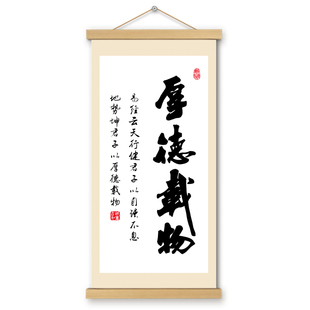 厚德載物
易经云天行健君子以自强不息
地势坤君子以厚德載物